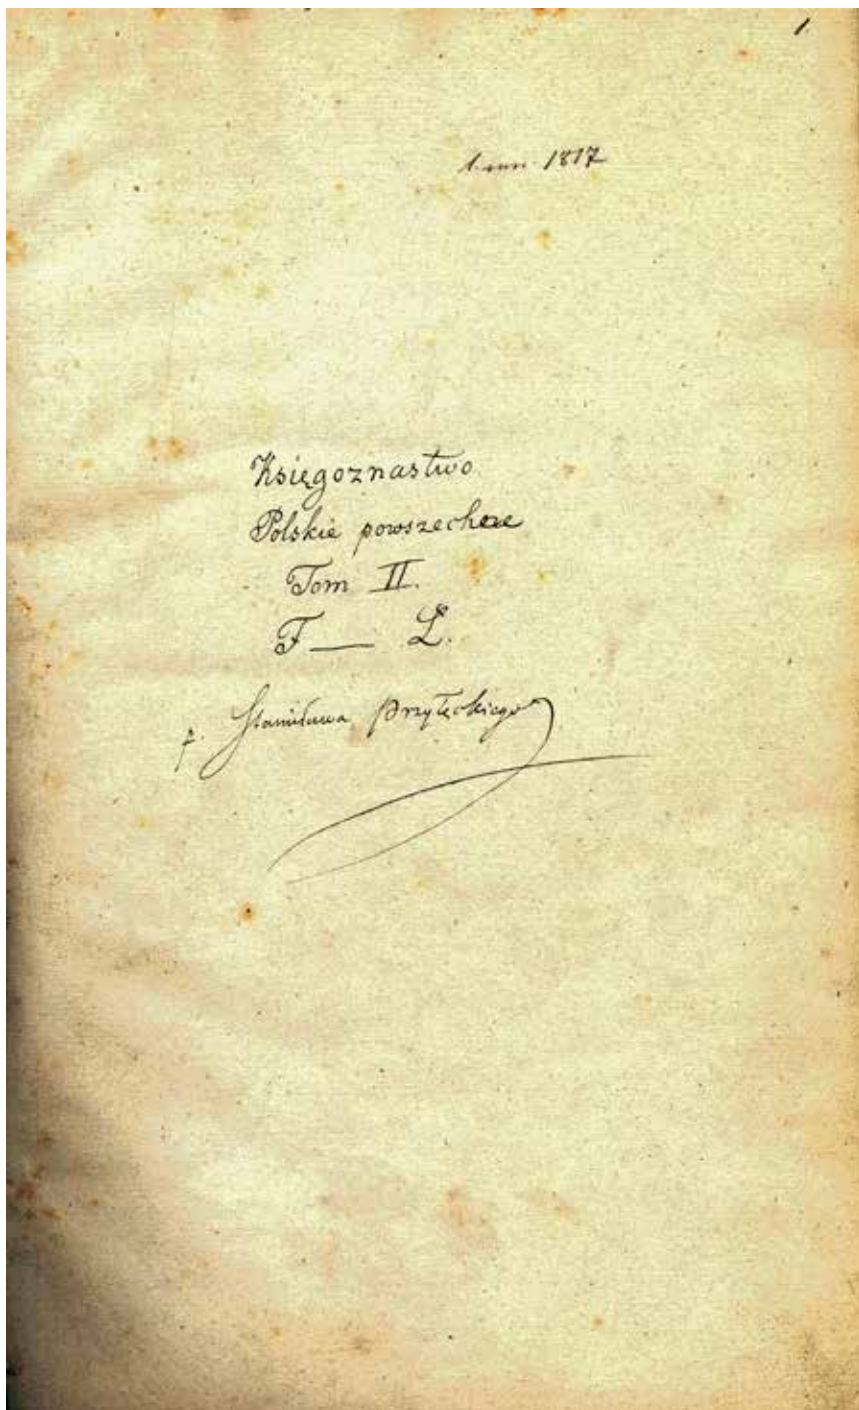 1
1. inn. 1817
Księgoznastwo
Polskie powszechne
Tom II.
F — L.
p. Stanisława Przyłęckiego